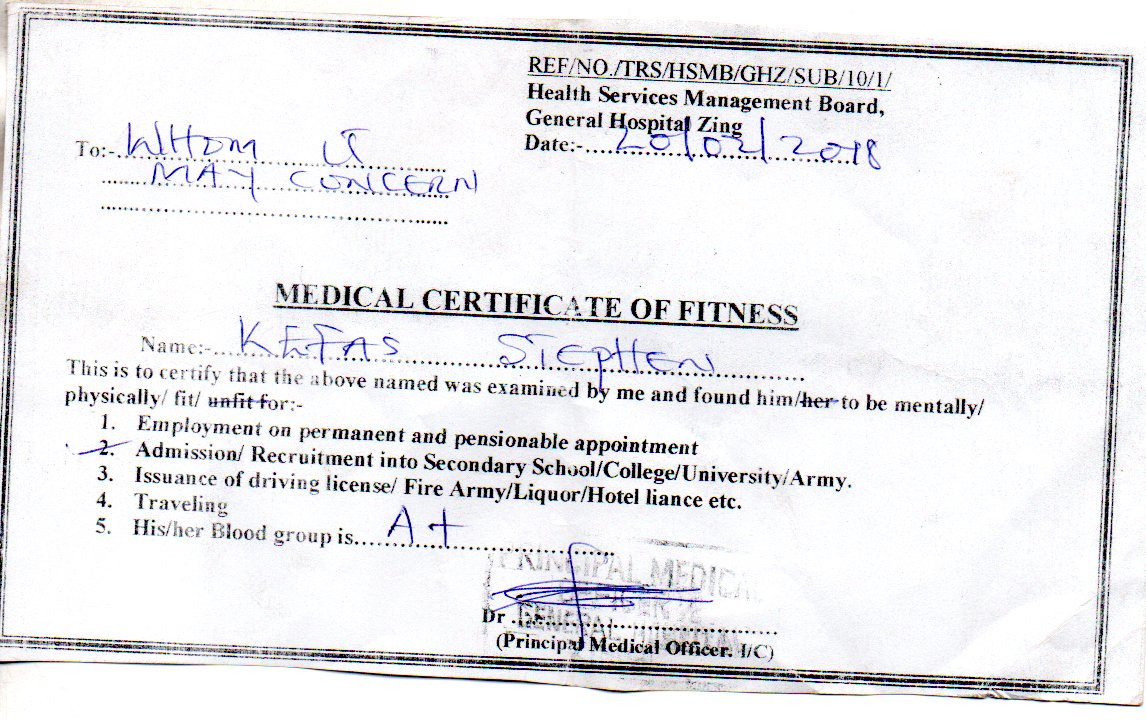 REF/NO./TRS/HSMB/GHZ/SUB/10/1/
Health Services Management Board,
General Hospital Zing
Date:-....20/02/2018
To:-..WHOM IT
MAY CONCERN
MEDICAL CERTIFICATE OF FITNESS
Name:-..KEFAS STEPHEN
This is to certify that the above named was examined by me and found him/her to be mentally/
physically/ fit/ unfit for:-
1. Employment on permanent and pensionable appointment
2. Admission/ Recruitment into Secondary School/College/University/Army.
3. Issuance of driving license/ Fire Army/Liquor/Hotel liance etc.
4. Traveling
5. His/her Blood group is....A+
PRINCIPAL MEDICA
OFFICER
GENERAL
Dr ....
(Principal Medical Officer. I/C)